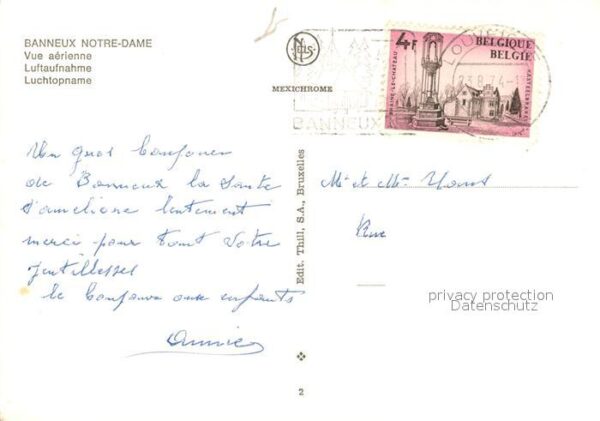 BANNEUX NOTRE-DAME
Vue aérienne
Luftaufnahme
Luchtopname
NELS
MEXICHROME
BANNEUX
4F
BELGIQUE
BELGIE
BRAINE-LE-CHATEAU
KASTEELBRAKEL
LOUVEIGNE
23.8.74
Un gros bonjour
de Banneux la Santé
s'améliore lentement
merci pour tout votre
gentillesses
le bonjour aux enfants
Annie
Edit. Thill, S.A., Bruxelles
Mr et Mme
Rue
privacy protection
Datenschutz
2